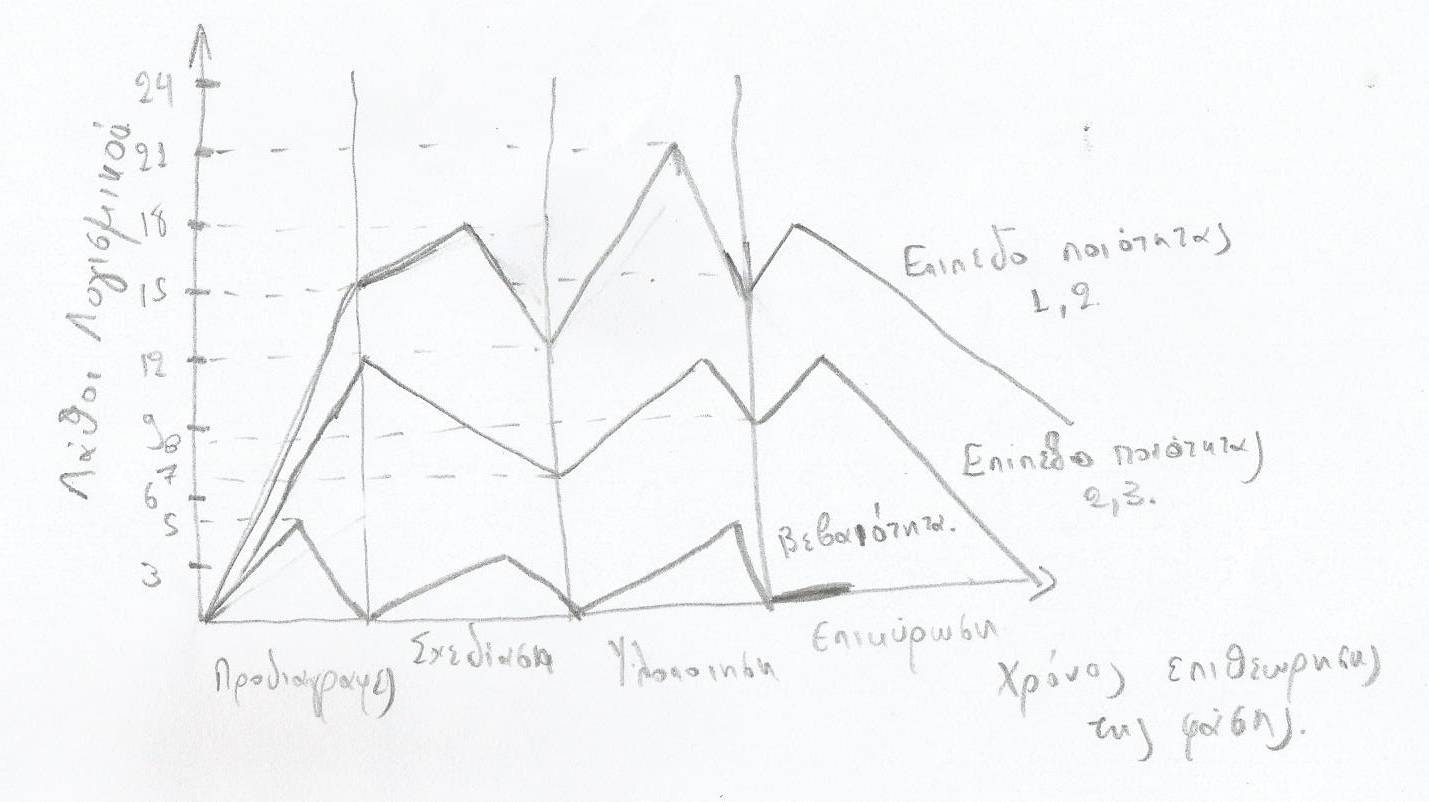 Λάθοι Λογισμικού
24
21
18
15
12
9
8
7
6
5
3
Επιπεδο ποιότητας
1,2
Επιπεδο ποιότητας
2,3.
Βεβαιότητα.
Προδιαγραφές
Σχεδίαση
Υλοποιηση
Επικύρωση
Χρόνος επιθεωρησης
της φάσης.